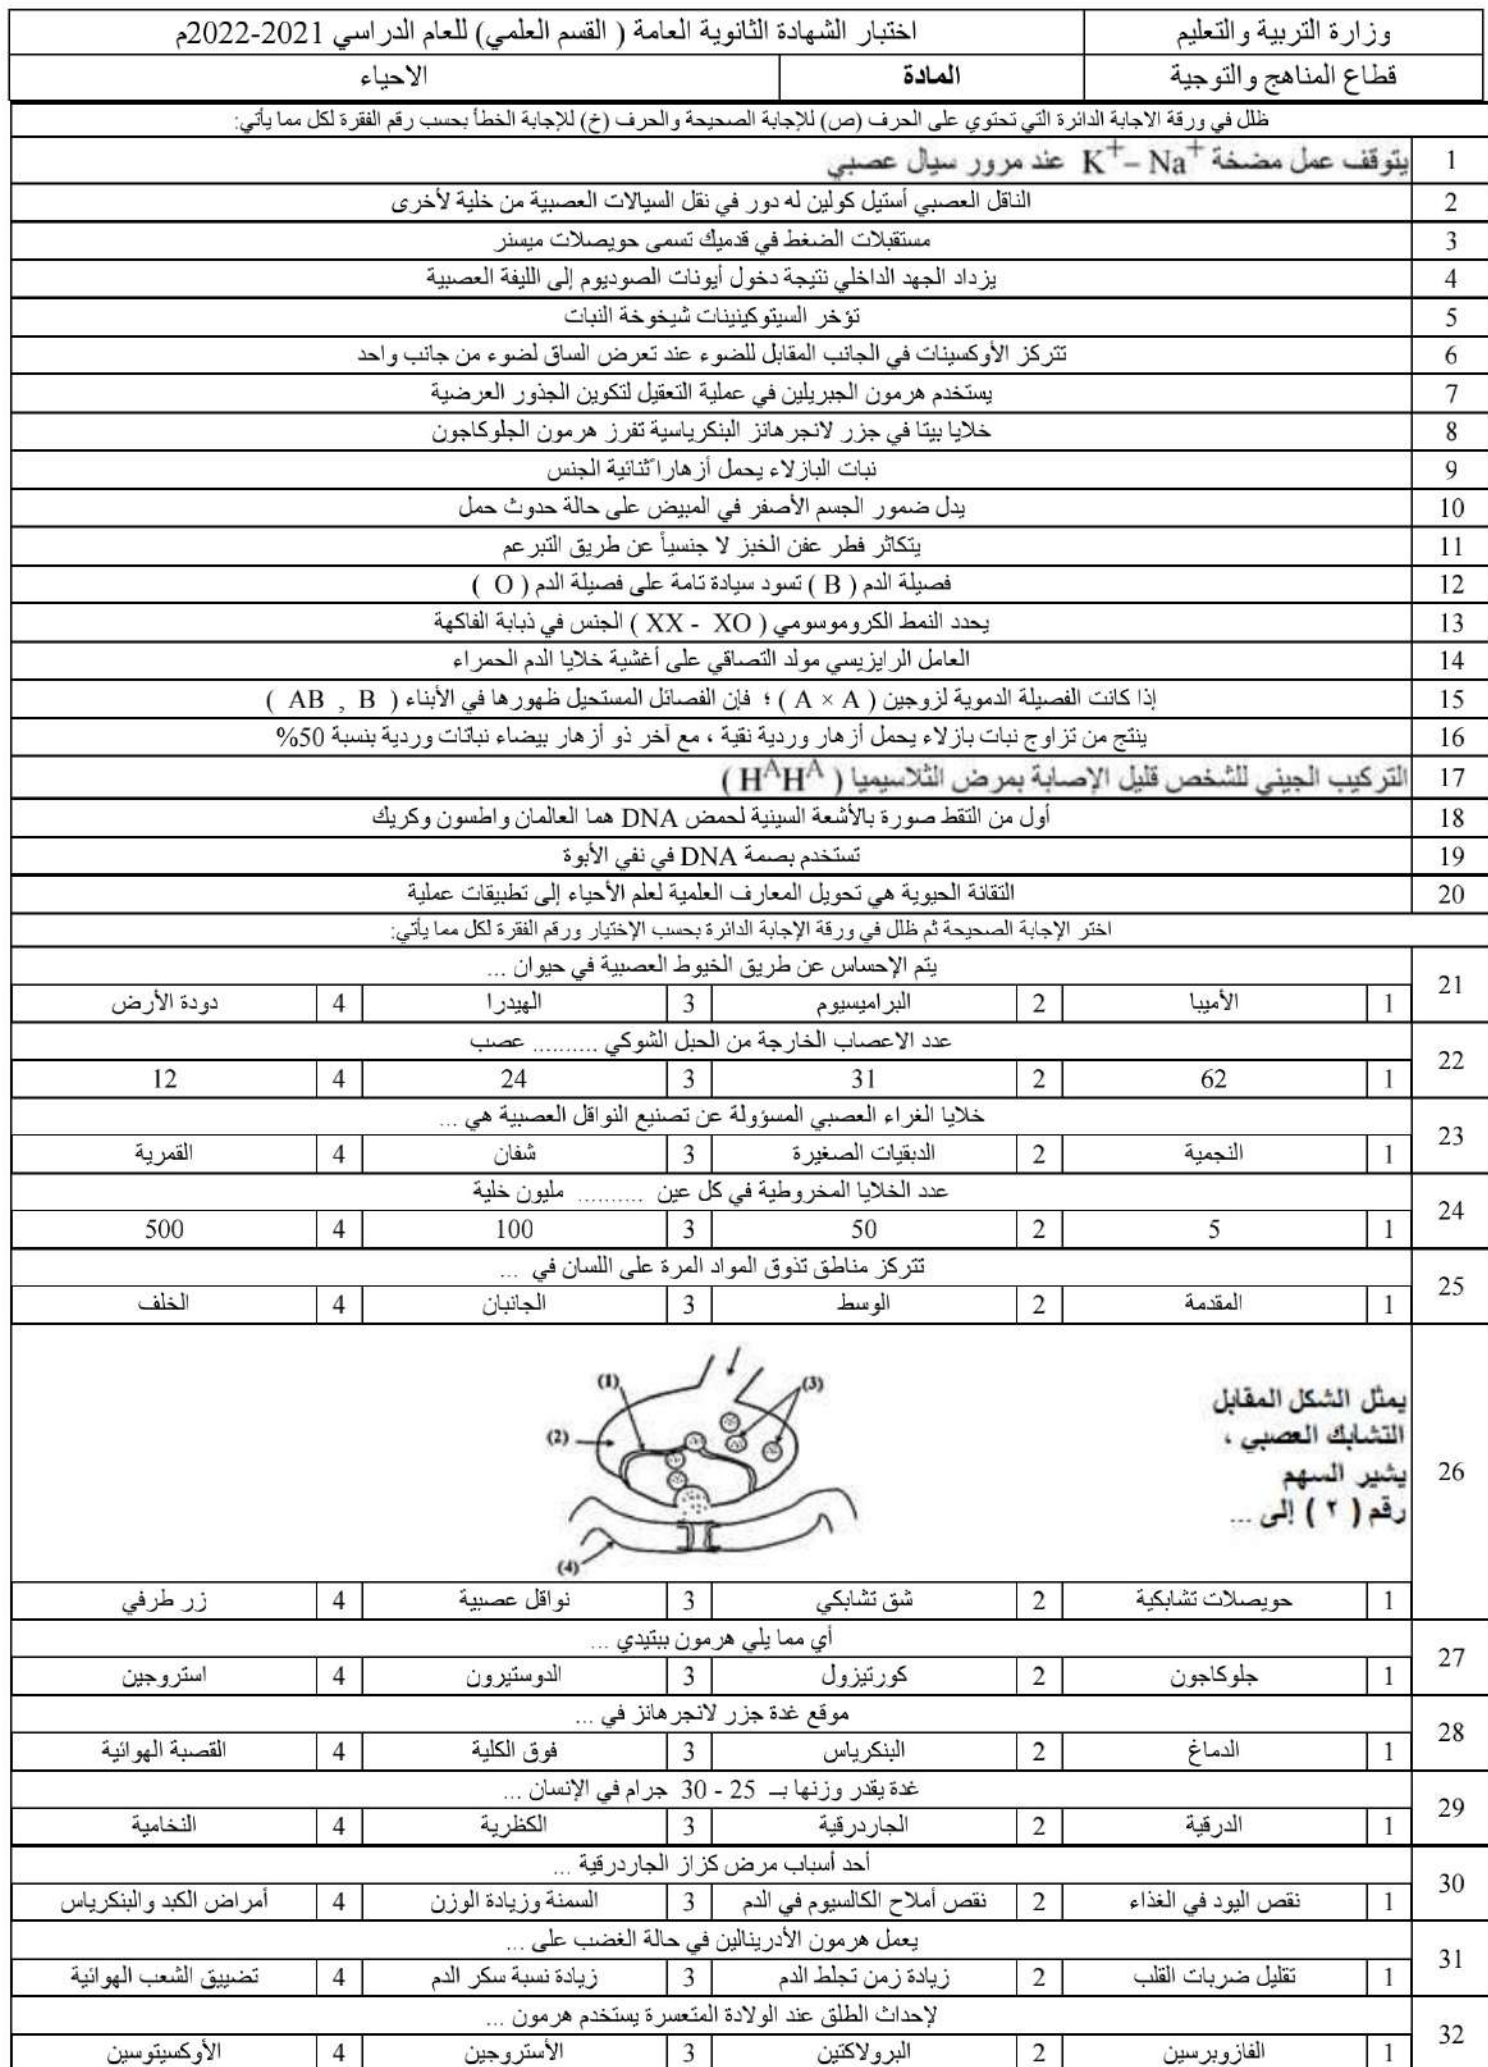 وزارة التربية والتعليم اختبار الشهادة الثانوية العامة ( القسم العلمي) للعام الدراسي 2021-2022م
قطاع المناهج والتوجية المادة الاحياء
ظلل في ورقة الاجابة الدائرة التي تحتوي على الحرف (ص) للإجابة الصحيحة والحرف (خ) للإجابة الخطأ بحسب رقم الفقرة لكل مما يأتي:
1 يتوقف عمل مضخة K⁺– Na⁺ عند مرور سيال عصبي
2 الناقل العصبي أستيل كولين له دور في نقل السيالات العصبية من خلية لأخرى
3 مستقبلات الضغط في قدميك تسمى حويصلات ميسنر
4 يزداد الجهد الداخلي نتيجة دخول أيونات الصوديوم إلى الليفة العصبية
5 تؤخر السيتوكينينات شيخوخة النبات
6 تتركز الأوكسينات في الجانب المقابل للضوء عند تعرض الساق لضوء من جانب واحد
7 يستخدم هرمون الجبريلين في عملية التعقيل لتكوين الجذور العرضية
8 خلايا بيتا في جزر لانجرهانز البنكرياسية تفرز هرمون الجلوكاجون
9 نبات البازلاء يحمل أزهاراً ثنائية الجنس
10 يدل ضمور الجسم الأصفر في المبيض على حالة حدوث حمل
11 يتكاثر فطر عفن الخبز لا جنسياً عن طريق التبرعم
12 فصيلة الدم ( B ) تسود سيادة تامة على فصيلة الدم ( O )
13 يحدد النمط الكروموسومي ( XX - XO ) الجنس في ذبابة الفاكهة
14 العامل الرايزيسي مولد التصاقي على أغشية خلايا الدم الحمراء
15 إذا كانت الفصيلة الدموية لزوجين ( A × A ) ؛ فإن الفصائل المستحيل ظهورها في الأبناء ( AB , B )
16 ينتج من تزاوج نبات بازلاء يحمل أزهار وردية نقية ، مع آخر ذو أزهار بيضاء نباتات وردية بنسبة 50%
17 التركيب الجيني للشخص قليل الإصابة بمرض الثلاسيميا ( HᴬHᴬ )
18 أول من التقط صورة بالأشعة السينية لحمض DNA هما العالمان واطسون وكريك
19 تستخدم بصمة DNA في نفي الأبوة
20 التقانة الحيوية هي تحويل المعارف العلمية لعلم الأحياء إلى تطبيقات عملية
اختر الإجابة الصحيحة ثم ظلل في ورقة الإجابة الدائرة بحسب الإختيار ورقم الفقرة لكل مما يأتي:
21 يتم الإحساس عن طريق الخيوط العصبية في حيوان ...
1 الأميبا 2 البراميسيوم 3 الهيدرا 4 دودة الأرض
22 عدد الاعصاب الخارجة من الحبل الشوكي .......... عصب
1 62 2 31 3 24 4 12
23 خلايا الغراء العصبي المسؤولة عن تصنيع النواقل العصبية هي ...
1 النجمية 2 الدبقيات الصغيرة 3 شفان 4 القمرية
24 عدد الخلايا المخروطية في كل عين .......... مليون خلية
1 5 2 50 3 100 4 500
25 تتركز مناطق تذوق المواد المرة على اللسان في ...
1 المقدمة 2 الوسط 3 الجانبان 4 الخلف
26 يمثل الشكل المقابل
التشابك العصبي ،
يشير السهم
رقم ( ٢ ) إلى ...
(1)
(3)
(2)
(4)
1 حويصلات تشابكية 2 شق تشابكي 3 نواقل عصبية 4 زر طرفي
27 أي مما يلي هرمون ببتيدي ...
1 جلوكاجون 2 كورتيزول 3 الدوستيرون 4 استروجين
28 موقع غدة جزر لانجرهانز في ...
1 الدماغ 2 البنكرياس 3 فوق الكلية 4 القصبة الهوائية
29 غدة يقدر وزنها بــ 25 - 30 جرام في الإنسان ...
1 الدرقية 2 الجاردرقية 3 الكظرية 4 النخامية
30 أحد أسباب مرض كزاز الجاردرقية ...
1 نقص اليود في الغذاء 2 نقص أملاح الكالسيوم في الدم 3 السمنة وزيادة الوزن 4 أمراض الكبد والبنكرياس
31 يعمل هرمون الأدرينالين في حالة الغضب على ...
1 تقليل ضربات القلب 2 زيادة زمن تجلط الدم 3 زيادة نسبة سكر الدم 4 تضييق الشعب الهوائية
32 لإحداث الطلق عند الولادة المتعسرة يستخدم هرمون ...
1 الفازوبرسين 2 البرولاكتين 3 الأستروجين 4 الأوكسيتوسين